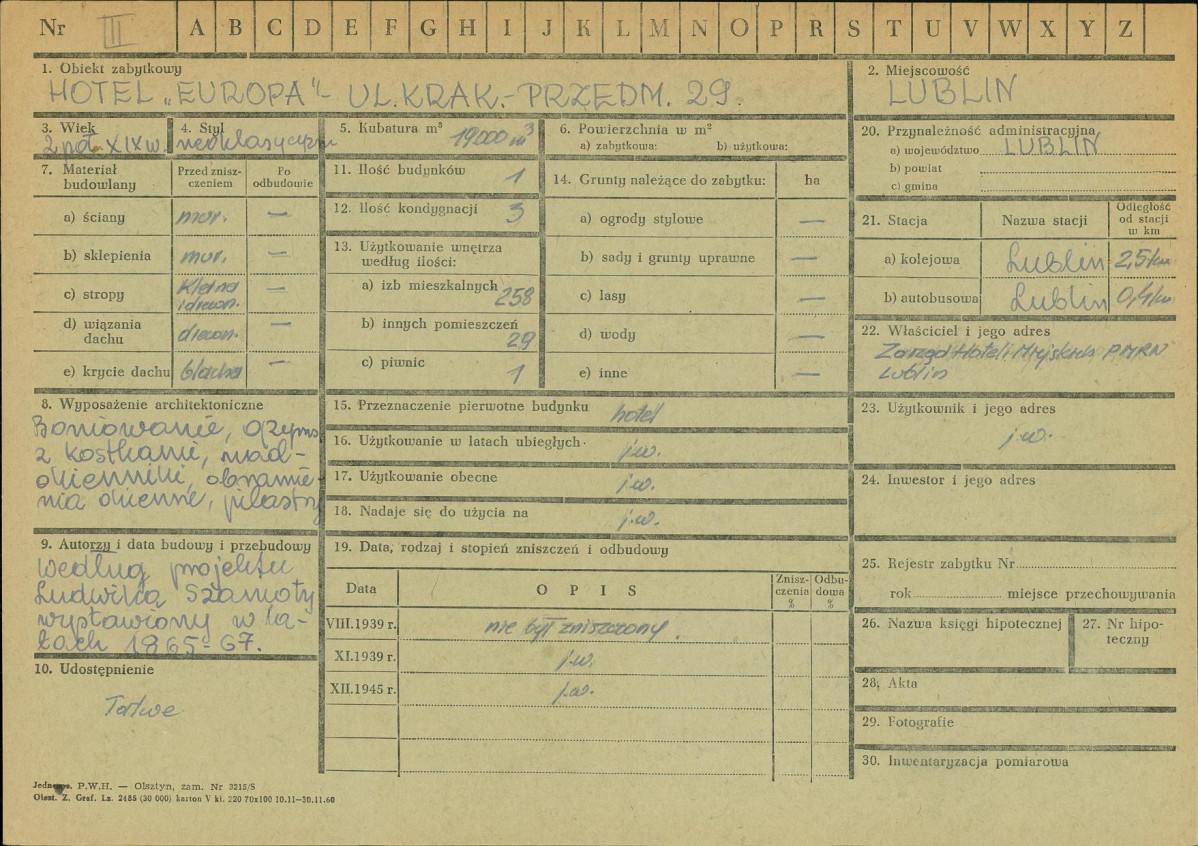 Nr III A B C D E F G H I J K L M N O P R S T U V W X Y Z
1. Obiekt zabytkowy
HOTEL „EUROPA" - UL. KRAK.-PRZEDM. 29.
2. Miejscowość
LUBLIN
3. Wiek
2 poł. XIX w.
4. Styl
neoklasyczny
5. Kubatura m³ 19000 m³
6. Powierzchnia w m²
a) zabytkowa: b) użytkowa:
7. Materiał budowlany
Przed zniszczeniem
Po odbudowie
a) ściany mur. —
b) sklepienia mur. —
c) stropy Kleina i drewn. —
d) wiązania dachu drewn. —
e) krycie dachu blacha —
8. Wyposażenie architektoniczne
Boniowanie, gzyms
z kostkami, nad-
okienniki, obramie-
nia okienne, pilastry
9. Autorzy i data budowy i przebudowy
według projektu
Ludwika Szamoty
wystawiony w la-
tach 1865-67.
10. Udostępnienie
Łatwe
11. Ilość budynków 1
12. Ilość kondygnacji 3
13. Użytkowanie wnętrza
według ilości:
a) izb mieszkalnych 258
b) innych pomieszczeń 29
c) piwnic 1
14. Grunty należące do zabytku: ha
a) ogrody stylowe —
b) sady i grunty uprawne —
c) lasy —
d) wody —
e) inne —
15. Przeznaczenie pierwotne budynku hotel
16. Użytkowanie w latach ubiegłych j.w.
17. Użytkowanie obecne j.w.
18. Nadaje się do użycia na j.w.
19. Data, rodzaj i stopień zniszczeń i odbudowy
Data OPIS Zniszczenia % Odbudowa %
VIII.1939 r. nie był zniszczony.
XI.1939 r. j.w.
XII.1945 r. j.w.
20. Przynależność administracyjna
a) województwo LUBLIN
b) powiat
c) gmina
21. Stacja Nazwa stacji Odległość od stacji w km
a) kolejowa Lublin 2,5 km
b) autobusowa Lublin 0,4 km
22. Właściciel i jego adres
Zarząd Hoteli Miejskich PMRN
Lublin
23. Użytkownik i jego adres
j.w.
24. Inwestor i jego adres
25. Rejestr zabytku Nr
rok miejsce przechowywania
26. Nazwa księgi hipotecznej
27. Nr hipoteczny
28. Akta
29. Fotografie
30. Inwentaryzacja pomiarowa
P.W.H. — Olsztyn, zam. Nr 3215/S
Olszt. Z. Graf. Lz. 2485 (30 000) karton V kl. 220 70x100 10.11—30.11.60